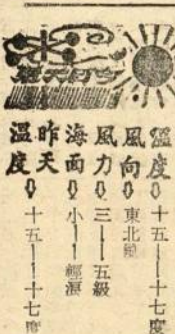 今日天氣
溫度⇩十五—十七度
風向⇩東北風
風力⇩三—五級
海面⇩小—輕浪
昨天
溫度⇩十五—十七度